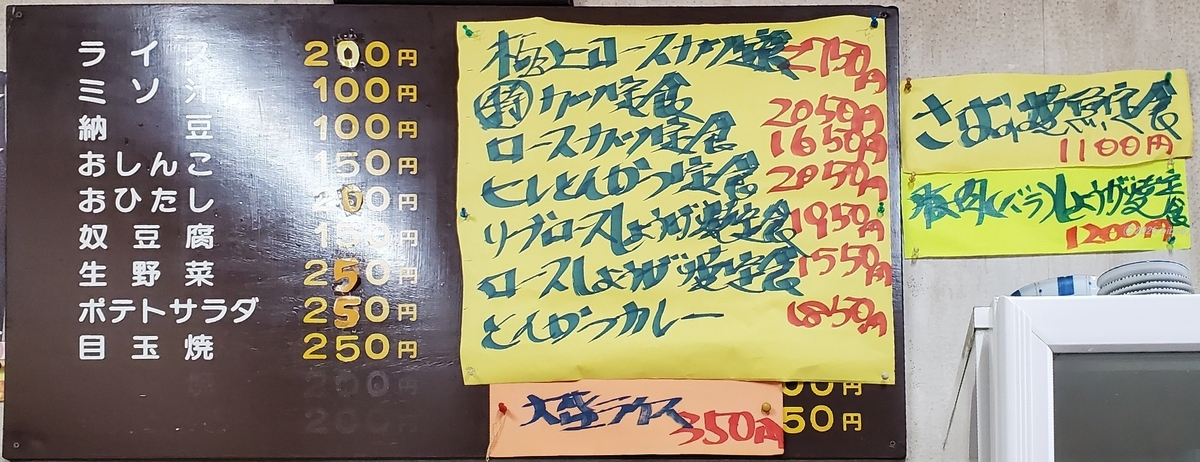 ライス 200円
ミソ汁 100円
納豆 100円
おしんこ 150円
おひたし 200円
奴豆腐 150円
生野菜 250円
ポテトサラダ 250円
目玉焼 250円
200円
200円
極上ロースカツ定食 2750円
特カツ定食 2050円
ロースカツ定食 1650円
ヒレとんかつ定食 2050円
リブロースしょうが焼定食 1950円
ロースしょうが焼定食 1550円
とんかつカレー 1850円
00円
50円
大盛ライス 350円
さば 定食
1100円
豚肉(バラ)しょうが焼定食
1200円